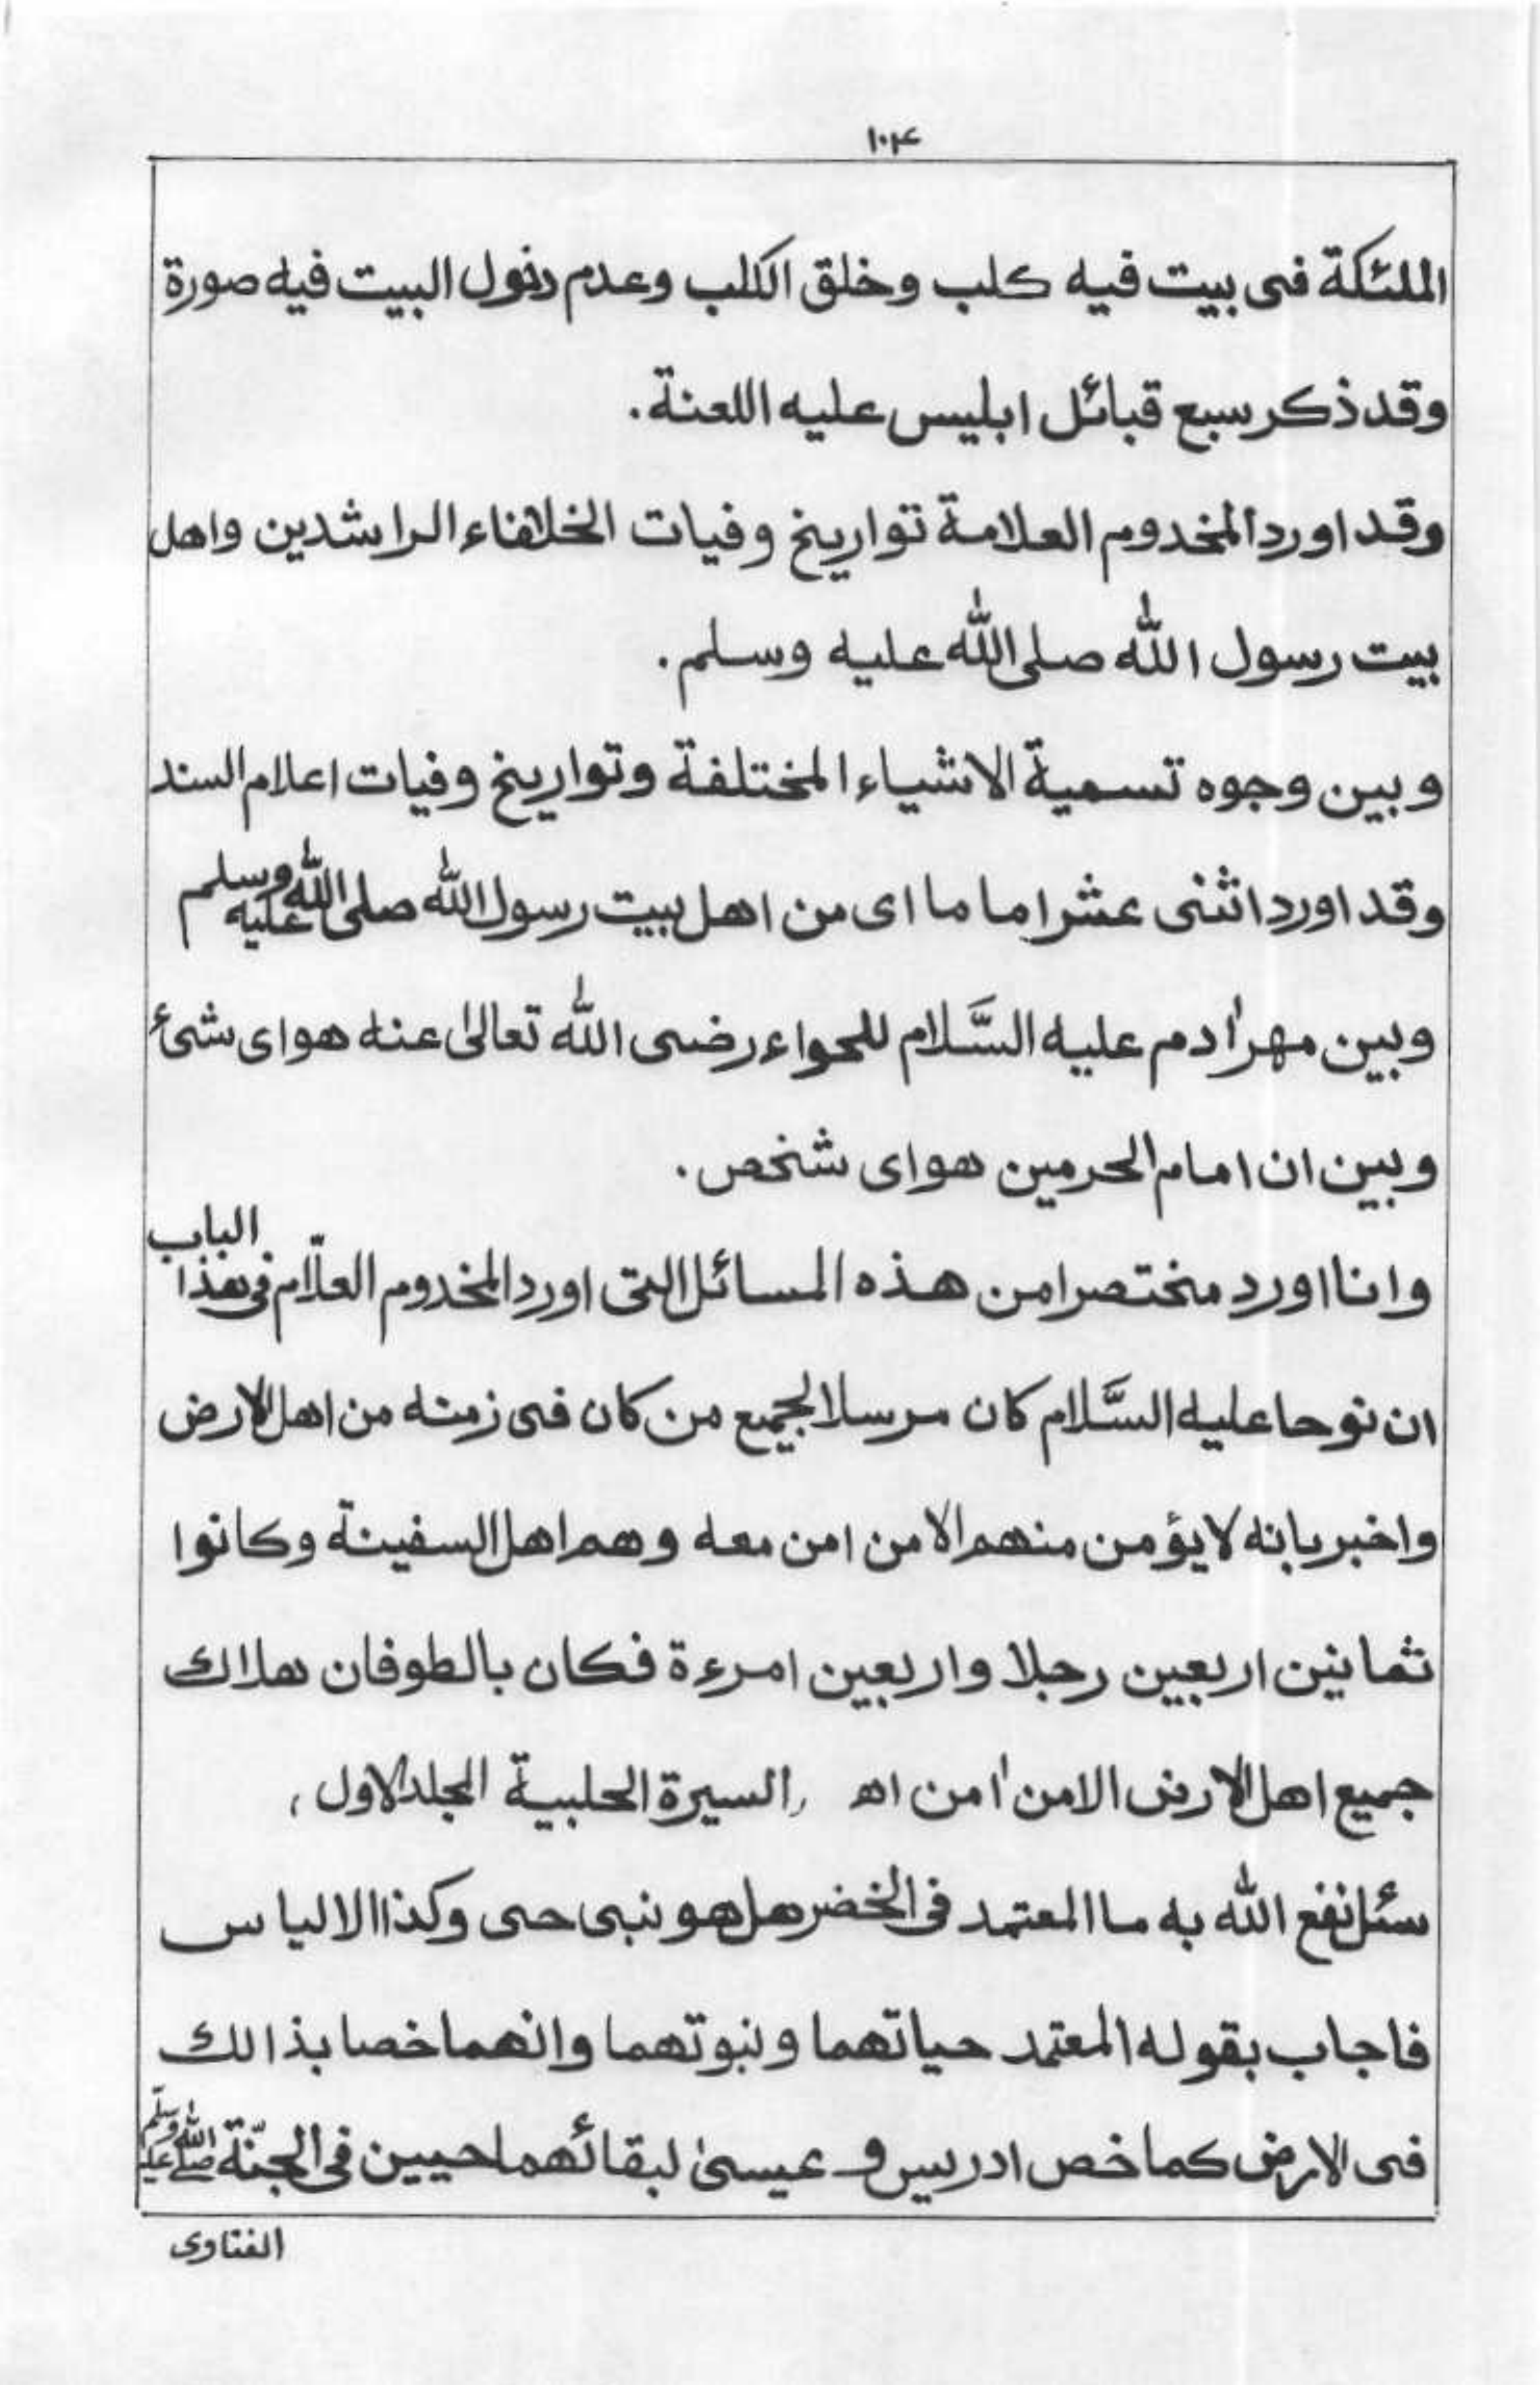 ۱۰۴
الملئكة فى بيت فيه كلب وخلق الكلب وعدم دخول البيت فيه صورة
وقد ذكر سبع قبائل ابليس عليه اللعنة.
وقد اورد المخدوم العلامة تواريخ وفيات الخلافاء الراشدين واهل
بيت رسول الله صلى الله عليه وسلم.
وبين وجوه تسمية الاشياء المختلفة وتواريخ وفيات اعلام السند
وقد اورد اثنى عشر اماما اى من اهل بيت رسول الله صلى الله عليه وسلم
وبين مهر اٰدم عليه السَّلام للحواء رضى الله تعالىٰ عنه هو اى شىٔ
وبين ان امام الحرمين هو اى شخص.
وانا اورد مختصرا من هذه المسائل التى اورد المخدوم العلّام فى هذا الباب
ان نوحا عليه السَّلام كان مرسلا لجميع من كان فى زمنه من اهل الارض
واخبر بانه لا يؤمن منهم الا من امن معه وهم اهل السفينة وكانوا
ثمانين اربعين رجلا واربعين امرءة فكان بالطوفان هلاك
جميع اهل الارض الا من اٰمن اھ (السيرة الحلبية المجلد الاول)
سئل نفع الله به ما المعتمد فى الخضر هل هو نبى حى وكذا الالياس
فاجاب بقوله المعتمد حياتهما ونبوتهما وانهما خصا بذالك
فى الارض كما خص ادريس و عيسىٰ لبقائهما حيين فى الجنّة صلے الله عليه وسلّم
الفتاوى